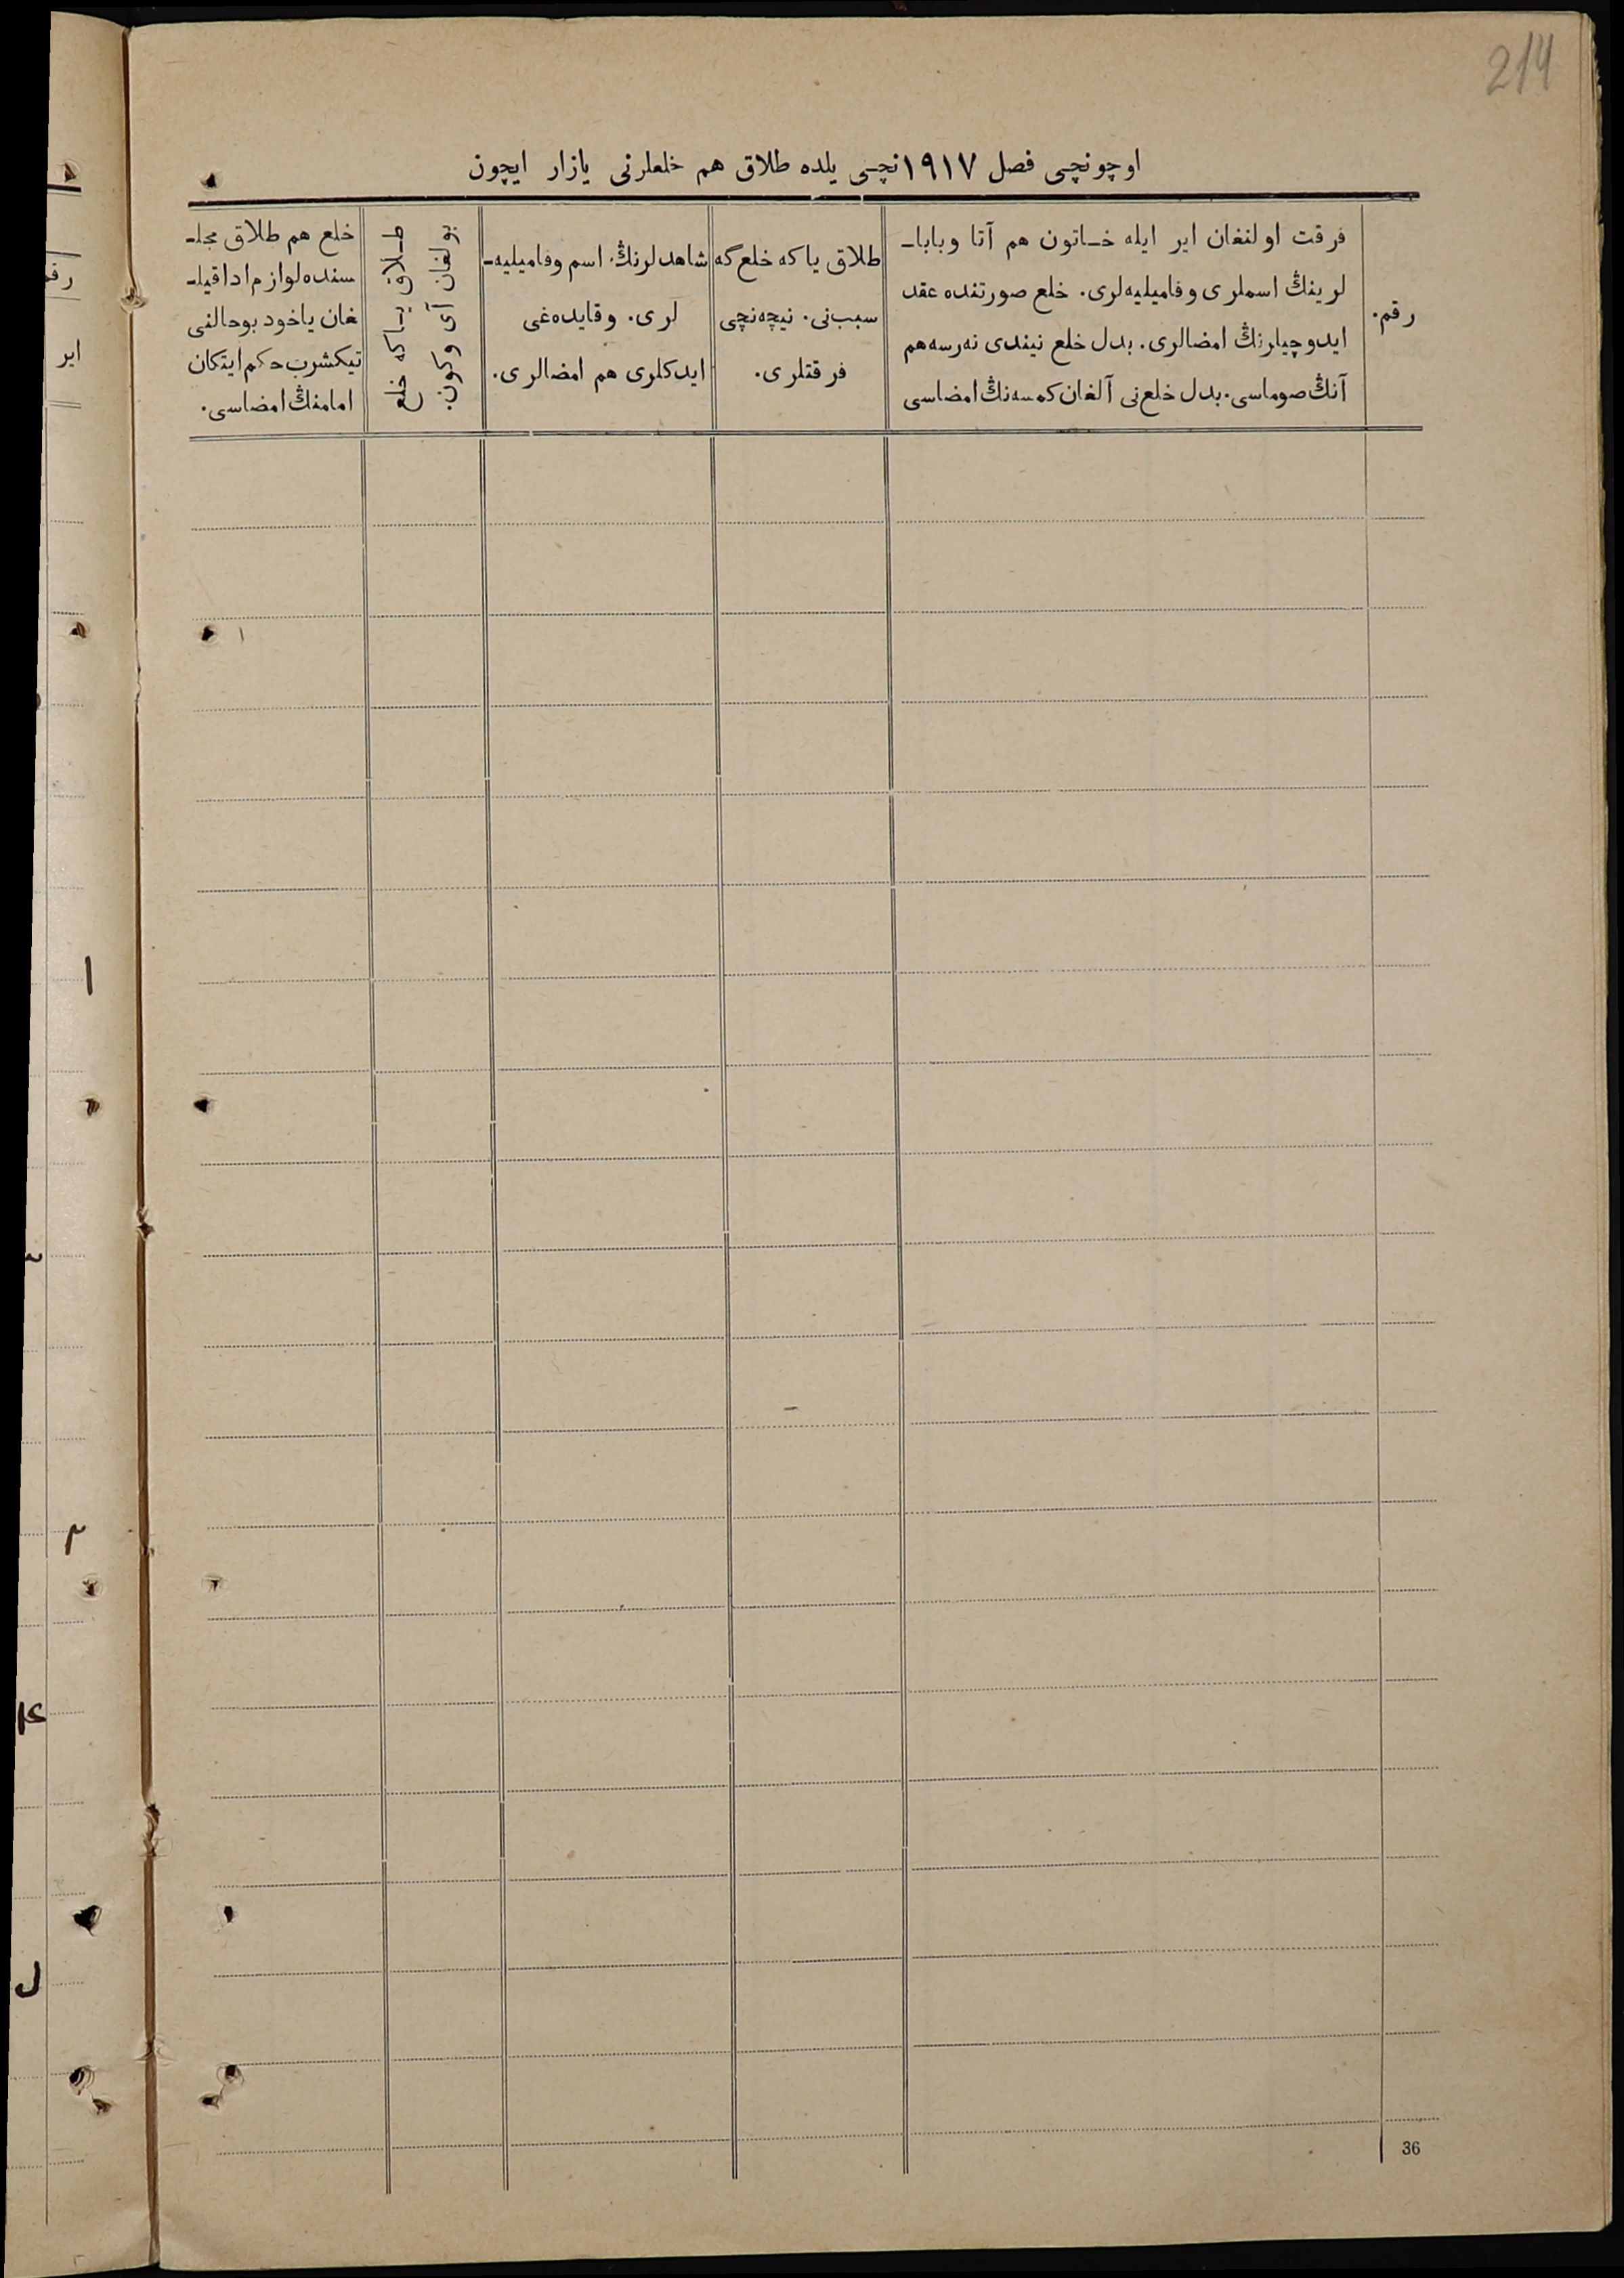 214
اوچونچی فصل ١٩١٧ نچی یلده طلاق هم خلعلرنی یازار ایچون
رقم.
فرقت اولنغان ایر ایله خاتون هم آتا وبابا-
لرینڭ اسملری وفامیلیه‌لری. خلع صورتنده عقد
ایدوچیلرنڭ امضالری. بدل خلع نیندی نه‌رسه هم
آنڭ صوماسی. بدل خلع‌نی آلغان کمسه‌نڭ امضاسی
طلاق یاکه خلع گه
سبب‌نی. نیچه‌نچی
فرقتلری.
شاهدلرنڭ اسم وفامیلیه-
لری. وقایده‌غی
ایدکلری هم امضالری.
طلاق یاکه خلع
بولغان آی وکون.
خلع هم طلاق مجلـ
سنده لوازم ادا قیلـ
غان یاخود بوحالنی
تیکشرب حکم ایتکان
امامنڭ امضاسی.
36
رقم
ایر